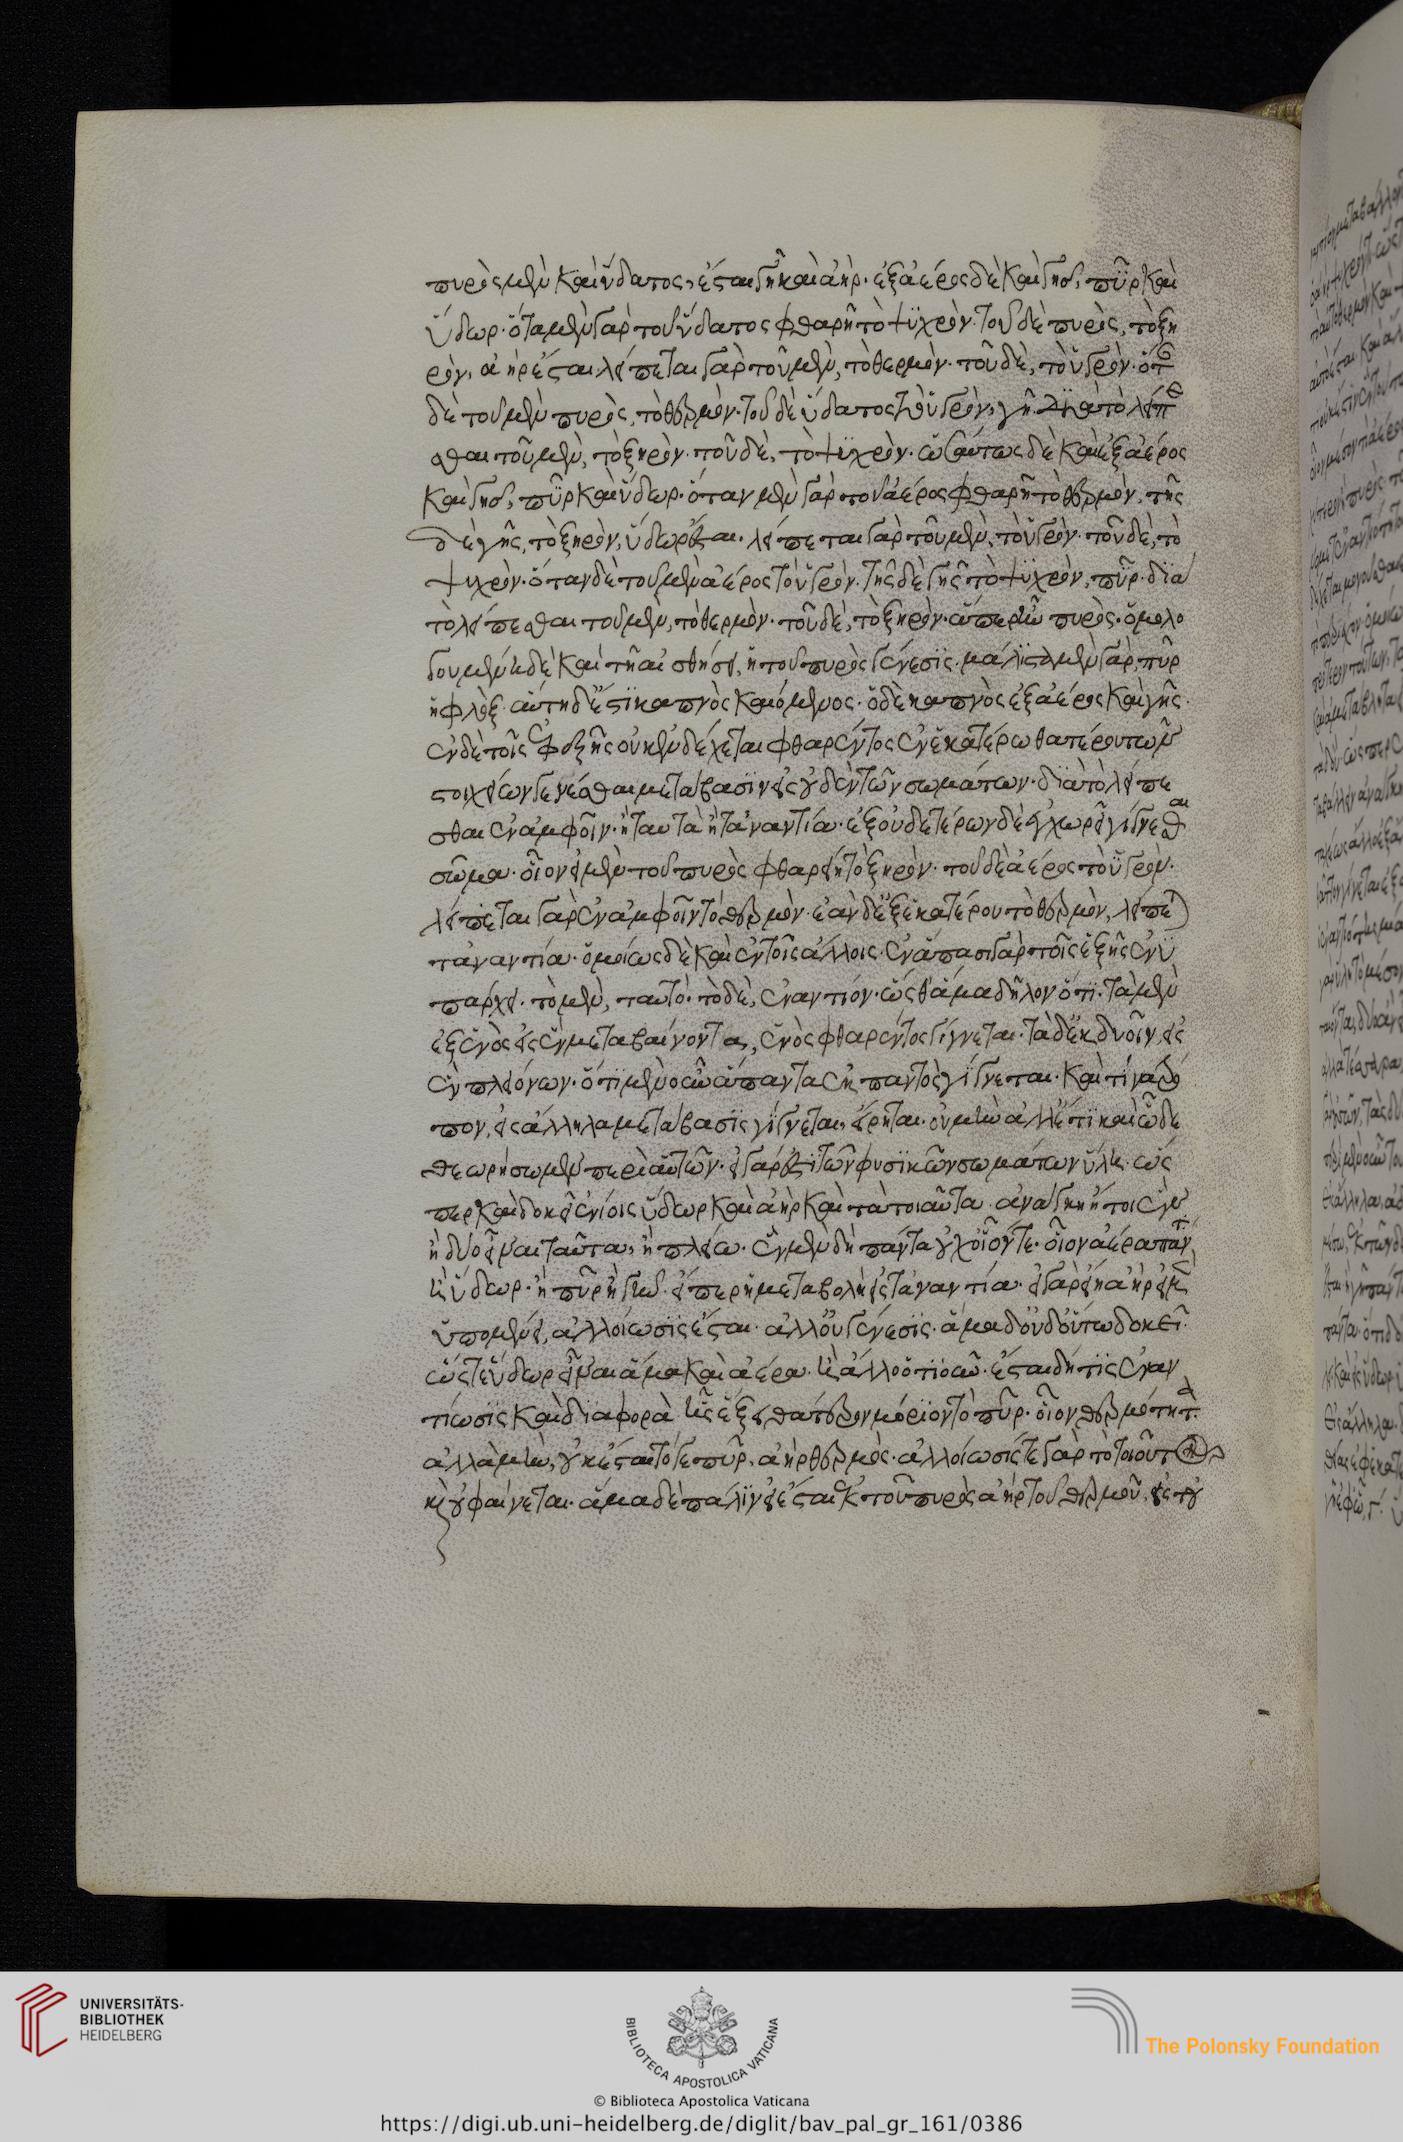 πυρὸς μὲν καὶ ὕδατος, ἔσται γῆ καὶ ἀήρ· ἐξ ἀέρος δὲ καὶ γῆς, πῦρ καὶ
ὕδωρ· ὅταν μὲν γὰρ τοῦ ὕδατος φθαρῇ τὸ ψυχρὸν· τοῦ δὲ πυρὸς, τὸ ξη
ρὸν, ἀὴρ ἔσται· λείπεται γὰρ τοῦ μὲν, τὸ θερμὸν· τοῦ δὲ, τὸ ὑγρὸν· ὅτ
δὲ τοῦ μὲν πυρὸς, τὸ θερμὸν· τοῦ δὲ ὕδατος τὸ ὑγρὸν, γῆ· διὰ τὸ λείπε
σθαι τοῦ μὲν, τὸ ξηρὸν· τοῦ δὲ, τὸ ψυχρὸν· ὡσαύτως δὲ καὶ ἐξ ἀέρος
καὶ γῆς, πῦρ καὶ ὕδωρ· ὅταν μὲν γὰρ τοῦ ἀέρος φθαρῇ τὸ θερμὸν, τῆς
δὲ γῆς, τὸ ξηρὸν, ὕδωρ ἔσται· λείπεται γὰρ τοῦ μὲν, τὸ ὑγρὸν· τοῦ δὲ, τὸ
ψυχρὸν· ὅταν δὲ τοῦ μὲν ἀέρος τὸ ὑγρὸν· τῆς δὲ γῆς τὸ ψυχρὸν, πῦρ· διὰ
τὸ λείπεσθαι τοῦ μὲν, τὸ θερμὸν· τοῦ δὲ, τὸ ξηρὸν· ἅπερ ἦν πυρὸς· ὁμολο
γουμένη δὲ καὶ τῇ αἰσθήσει, ἡ τοῦ πυρὸς γένεσις· μάλιστα μὲν γὰρ, πῦρ
ἡ φλὸξ· αὕτη δ' ἔστι καπνὸς καιόμενος· ὁ δὲ καπνὸς ἐξ ἀέρος καὶ γῆς·
ἐν δὲ τοῖς ἐφεξῆς οὐκ ἐνδέχεται φθαρέντος ἐν ἑκατέρῳ θατέρου τῶν
στοιχείων γενέσθαι μετάβασιν εἰς οὐδὲν τῶν σωμάτων· διὰ τὸ λείπε
σθαι ἐν ἀμφοῖν· ἢ ταὐτὰ ἢ τἀναντία· ἐξ οὐδετέρων δὲ ἐγχωρεῖ γίγνεσθαι
σῶμα· οἷον εἰ μὲν τοῦ πυρὸς φθαρείη τὸ ξηρὸν· τοῦ δὲ ἀέρος τὸ ὑγρὸν·
λείπεται γὰρ ἐν ἀμφοῖν τὸ θερμὸν· ἐὰν δ' ἐξ ἑκατέρου τὸ θερμὸν, λείπε
τἀναντία· ὁμοίως δὲ καὶ ἐν τοῖς ἄλλοις· ἐν ἅπασι γὰρ τοῖς ἑξῆς ἐνυ
πάρχει· τὸ μὲν, ταυτό· τὸ δὲ, ἐναντιόν· ὥσθ' ἅμα δῆλον ὅτι· τὰ μὲν
ἐξ ἑνὸς εἰς ἓν μεταβαίνοντα, ἑνὸς φθαρέντος γίγνεται· τὰ δ' ἐκ δυοῖν, εἰς
ἓν πλειόνων· ὅτι μὲν οὖν ἅπαντα ἐκ παντὸς γίγνεται· καὶ τίνα τρό
πον, εἰς ἄλληλα μετάβασις γίγνεται, εἴρηται· οὐ μὴν ἀλλ' ἔτι καὶ ὧδε
θεωρήσωμεν περὶ αὐτῶν· εἰ γάρ ἐστι τῶν φυσικῶν σωμάτων ὕλη· ὥς
περ καὶ δοκεῖ ἐνίοις ὕδωρ καὶ ἀὴρ καὶ τὰ τοιαῦτα· ἀνάγκη ἤτοι ἓν
ἢ δύο εἶναι ταῦτα, ἢ πλείω· ἓν μὲν δὴ πάντα οὐχ οἷόν τε· οἷον ἀέρα πάντ
ἢ ὕδωρ· ἢ πῦρ ἢ γῆν· εἴπερ ἡ μεταβολὴ εἰς τἀναντία· εἰ γὰρ εἴη ἀὴρ εἰ μ
ὑπομένει, ἀλλοίωσις ἔσται· ἀλλ' οὐ γένεσις· ἅμα δ' οὐδ' οὕτω δοκεῖ·
ὥστε ὕδωρ εἶναι ἅμα καὶ ἀέρα· ἢ ἄλλο ὁτιοῦν· ἔσται δή τις ἐναν
τίωσις καὶ διαφορὰ ἧς ἕξει θάτερον μόριον τὸ πῦρ· οἷον θερμότητα·
ἀλλὰ μὴν, οὐκ ἔσται τό γε πῦρ, ἀὴρ θερμὸς· ἀλλοίωσίς τε γὰρ τὸ τοιοῦτον
καὶ οὐ φαίνεται· ἅμα δὲ πάλιν εἰ ἔσται ἐκ τοῦ πυρὸς ἀὴρ τοῦ θερμοῦ, εἰς τοὐ
UNIVERSITÄTS-
BIBLIOTHEK
HEIDELBERG
BIBLIOTECA APOSTOLICA VATICANA
The Polonsky Foundation
© Biblioteca Apostolica Vaticana
https://digi.ub.uni-heidelberg.de/diglit/bav_pal_gr_161/0386